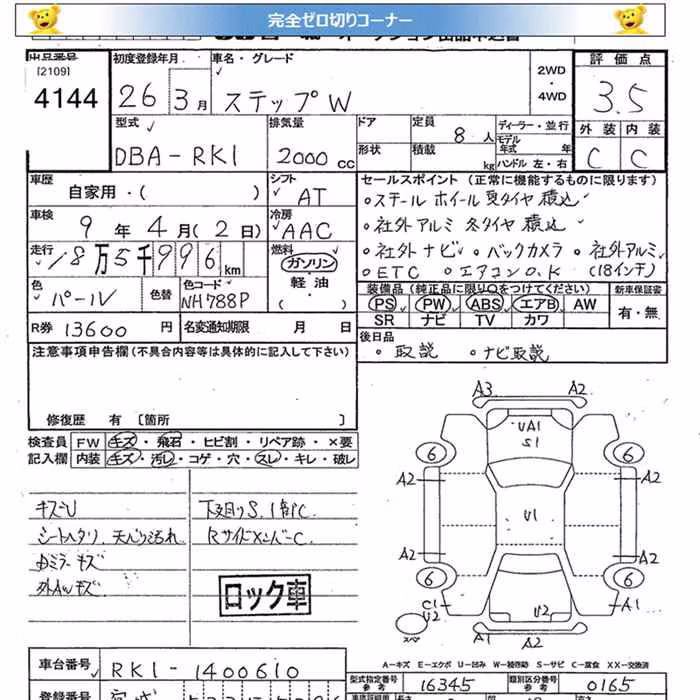 完全ゼロ切りコーナー
出品番号 [2109] 4144
初度登録年月 26年 3月
車名・グレード ステップW
2WD・4WD
評価点 3.5
外装 C 内装 C
型式 DBA-RK1
排気量 2000 cc
ドア 形状
定員 8人
積載 kg
ディーラー・並行
モデル年式 年
ハンドル 左・右
車歴 自家用・( )
シフト AT
セールスポイント (正常に機能するものに限ります)
・ステール ホイール 夏タイヤ 積込
・社外アルミ 冬タイヤ 積込
・社外ナビ ・バックカメラ ・社外アルミ
・ETC ・エアコンO.K (18インチ)
車検 9年 4月 (2日)
冷房 AAC
走行 18万5千996km
燃料 ガソリン・軽油
色 パール 色替
色コード NH788P
装備品 (純正品に限り○をつけてください)
PS PW ABS エアB AW
SR ナビ TV カワ
新車保証書 有・無
R券 13600 円
名変通知期限 月 日
後日品 ・取説 ・ナビ取説
注意事項申告欄(不具合内容等は具体的に記入して下さい)
修復歴 有 [箇所 ]
検査員記入欄
FW キズ・飛石・ヒビ割・リペア跡・×要
内装 キズ・汚レ・コゲ・穴・スレ・キレ・破レ
キズU
シートヘタリ、天張り汚れ
内ミラーキズ
外AWキズ
下廻りS、1部C
RサイドメンバーC
ロック車
A3 A2
UA1
S1
6 6
A2 A2
U1
A2 A2
6 6
C1 U2 A1
スペア
A1 A2
A-キズ E-エクボ U-凹み W-補修跡 S-サビ C-腐食 XX-交換済
車台番号 RK1-1400610
型式指定番号 参考 16345
類別区分番号 参考 0165
登録番号 宮城